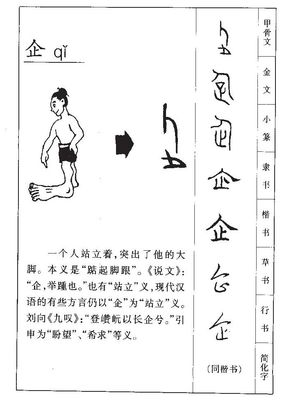 企 qǐ
一个人站立着，突出了他的大
脚。本义是“踮起脚跟”。《说文》：
“企，举踵也。”也有“站立”义，现代汉
语的有些方言仍以“企”为“站立”义。
刘向《九叹》：“登巑岏以长企兮。”引
申为“盼望”、“希求”等义。
企
企
企
企
企
企
企
（同楷书）
甲骨文
金文
小篆
隶书
楷书
草书
行书
简化字